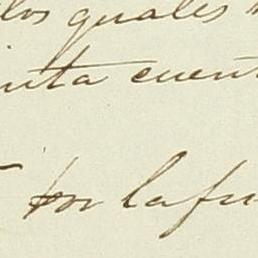 los quales
inta cuent
por lafu